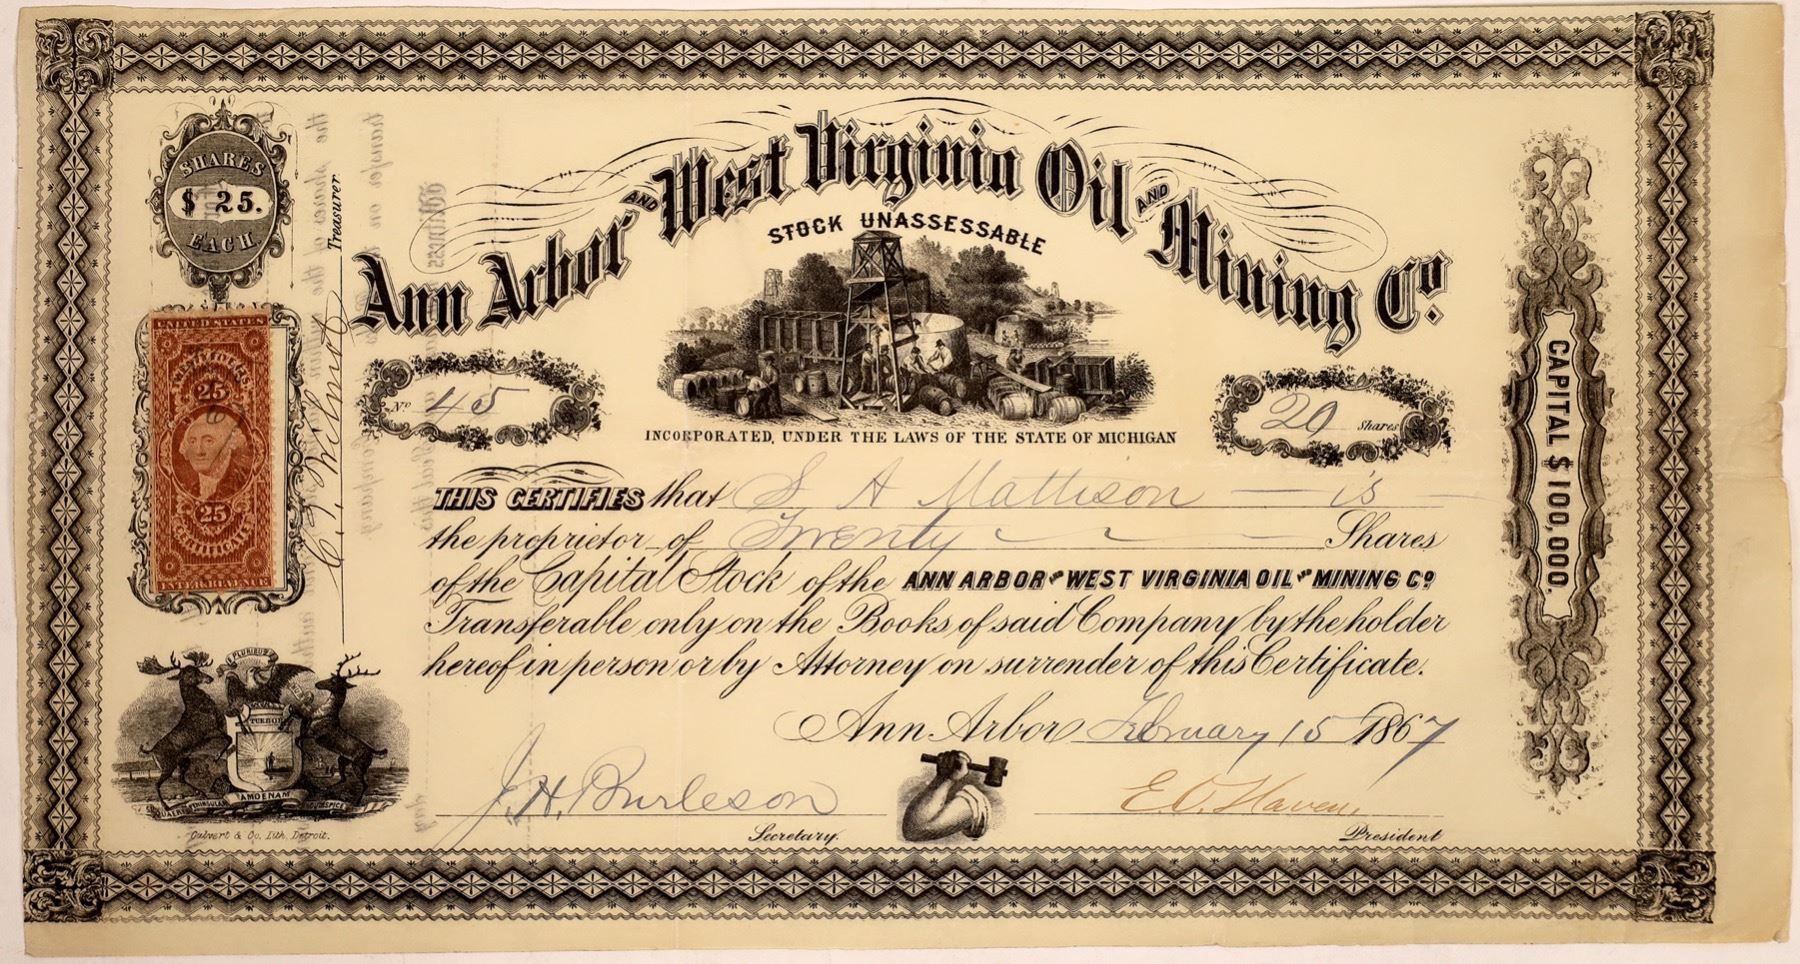 SHARES
$ 25.
EACH.
Treasurer
Ann Arbor AND West Virginia Oil AND Mining Co.
STOCK UNASSESSABLE
No 45
20 Shares
INCORPORATED, UNDER THE LAWS OF THE STATE OF MICHIGAN
UNITED STATES
25
25
CERTIFICATE
INTER. REVENUE
THIS CERTIFIES that S A Mattison is
the proprietor of Twenty Shares
of the Capital Stock of the ANN ARBOR AND WEST VIRGINIA OIL AND MINING CO
Transferable only on the Books of said Company by the holder
hereof in person or by Attorney on surrender of this Certificate.
Ann Arbor February 15 1867
J. H. Burleson
Secretary.
E. O. Haven,
President
CAPITAL $100,000.
PLURIBUS
TUEBOR
AMOENAM
Calvert & Co. Lith. Detroit.